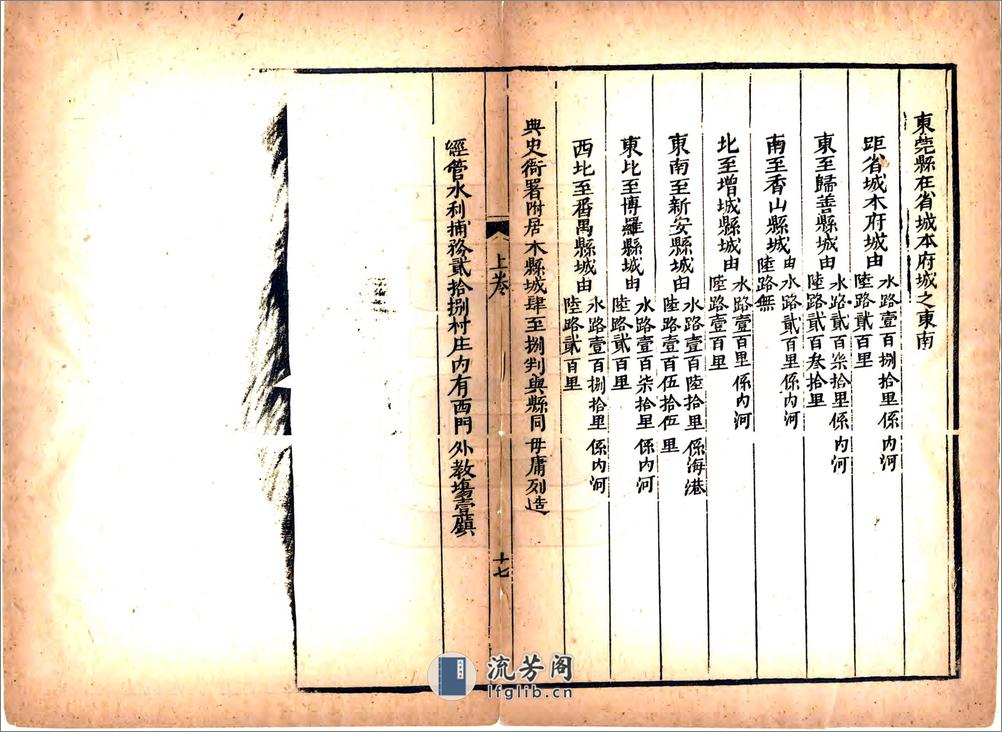 東莞縣在省城本府城之東南
距省城本府城由 水路壹百捌拾里係內河
陸路貳百里
東至歸善縣城由 水路貳百柒拾里係內河
陸路貳百叁拾里
南至香山縣城由 水路貳百里係內河
陸路無
北至增城縣城由 水路壹百里係內河
陸路壹百里
東南至新安縣城由 水路壹百陸拾里係海港
陸路壹百伍拾伍里
東北至博羅縣城由 水路壹百柒拾里係內河
陸路貳百里
西北至番禺縣城由 水路壹百捌拾里係內河
陸路貳百里
典史衙署附居本縣城肆至捌判與縣同毋庸列造
上卷
十七
經管水利捕務貳拾捌村庄內有西門外教塲壹鎮
流芳阁
lfglib.cn